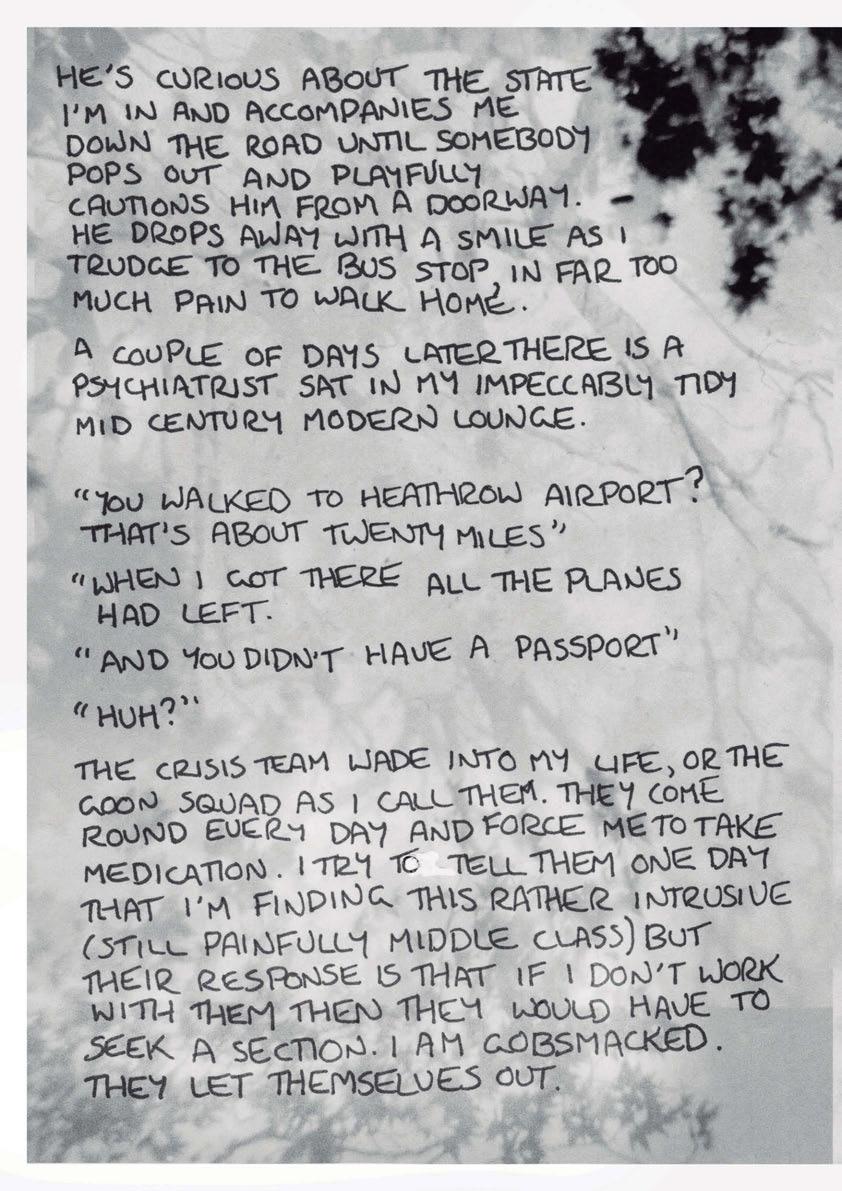 HE'S CURIOUS ABOUT THE STATE
I'M IN AND ACCOMPANIES ME
DOWN THE ROAD UNTIL SOMEBODY
POPS OUT AND PLAYFULLY
CAUTIONS HIM FROM A DOORWAY. -
HE DROPS AWAY WITH A SMILE AS I
TRUDGE TO THE BUS STOP, IN FAR TOO
MUCH PAIN TO WALK HOME.
A COUPLE OF DAYS LATER THERE IS A
PSYCHIATRIST SAT IN MY IMPECCABLY TIDY
MID CENTURY MODERN LOUNGE.
"YOU WALKED TO HEATHROW AIRPORT?
THAT'S ABOUT TWENTY MILES"
"WHEN I GOT THERE ALL THE PLANES
HAD LEFT.
"AND YOU DIDN'T HAVE A PASSPORT"
"HUH?"
THE CRISIS TEAM WADE INTO MY LIFE, OR THE
GOON SQUAD AS I CALL THEM. THEY COME
ROUND EVERY DAY AND FORCE ME TO TAKE
MEDICATION. I TRY TO TELL THEM ONE DAY
THAT I'M FINDING THIS RATHER INTRUSIVE
(STILL PAINFULLY MIDDLE CLASS) BUT
THEIR RESPONSE IS THAT IF I DON'T WORK
WITH THEM THEN THEY WOULD HAVE TO
SEEK A SECTION. I AM GOBSMACKED.
THEY LET THEMSELVES OUT.